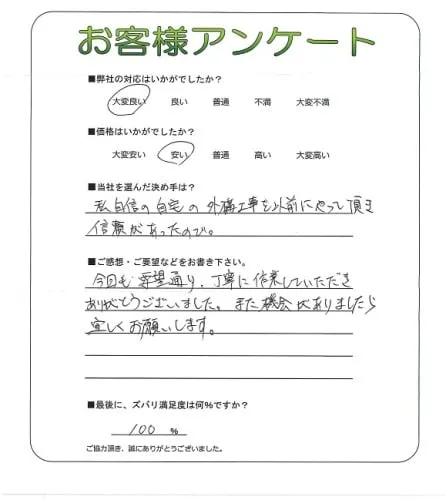 お客様アンケート
■弊社の対応はいかがでしたか？
大変良い 良い 普通 不満 大変不満
■価格はいかがでしたか？
大変安い 安い 普通 高い 大変高い
■当社を選んだ決め手は？
私自信の自宅の外構工事を以前にやって頂き
信頼があったので。
■ご感想・ご要望などをお書き下さい。
今回も要望通り、丁寧に作業していただき
ありがとうございました。また機会がありましたら
宜しくお願いします。
■最後に、ズバリ満足度は何%ですか？
100 %
ご協力頂き、誠にありがとうございました。